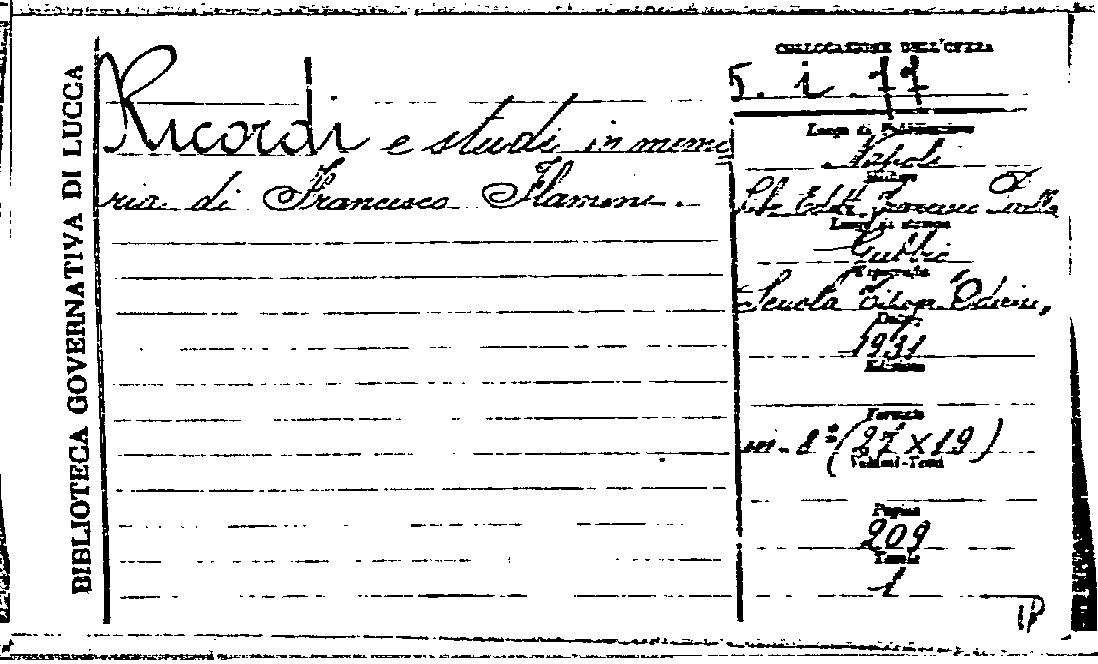 BIBLIOTECA GOVERNATIVA DI LUCCA
Ricordi e studi in memo
ria di Francesco Flamini.
COLLOCAZIONE DELL'OPERA
5. i 77
Luogo di Pubblicazione
Napoli
Editore
Edit.
Luogo di stampa
Gubbio
Tipografia
Scuola Tipog. Oderisi,
Data
1931
Edizione
Formato
in-8° (27 x 19)
Volumi-Tomi
Pagine
209
Tavole
1